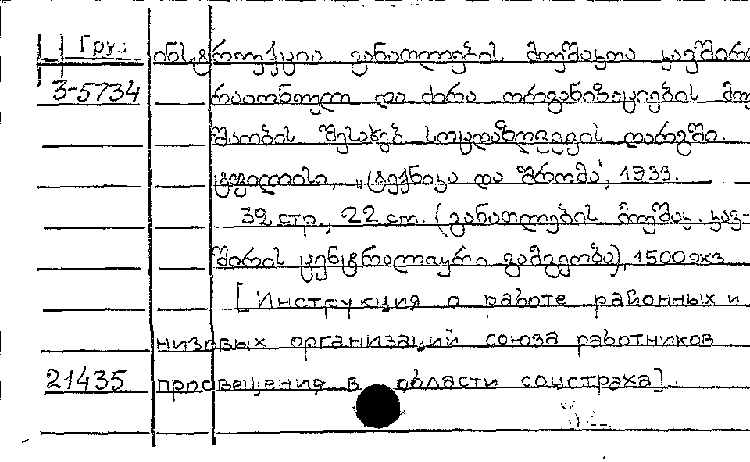 Груз ინსტრუქცია განათლების მუშაკთა კავშირის
3-5734 რაიონულ და ძირა ორგანიზაციების მუ-
შაობის შესახებ სოცდაზღვევის დარგში.
ტფილისი, „ტექნიკა და შრომა", 1933.
32 стр., 22 см. (განათლების მუშაკ. კავ-
შირის ცენტრალური გამგეობა), 1500 экз
[Инструкция о работе районных и
низовых организаций союза работников
21435 просвещения в области соцстраха].